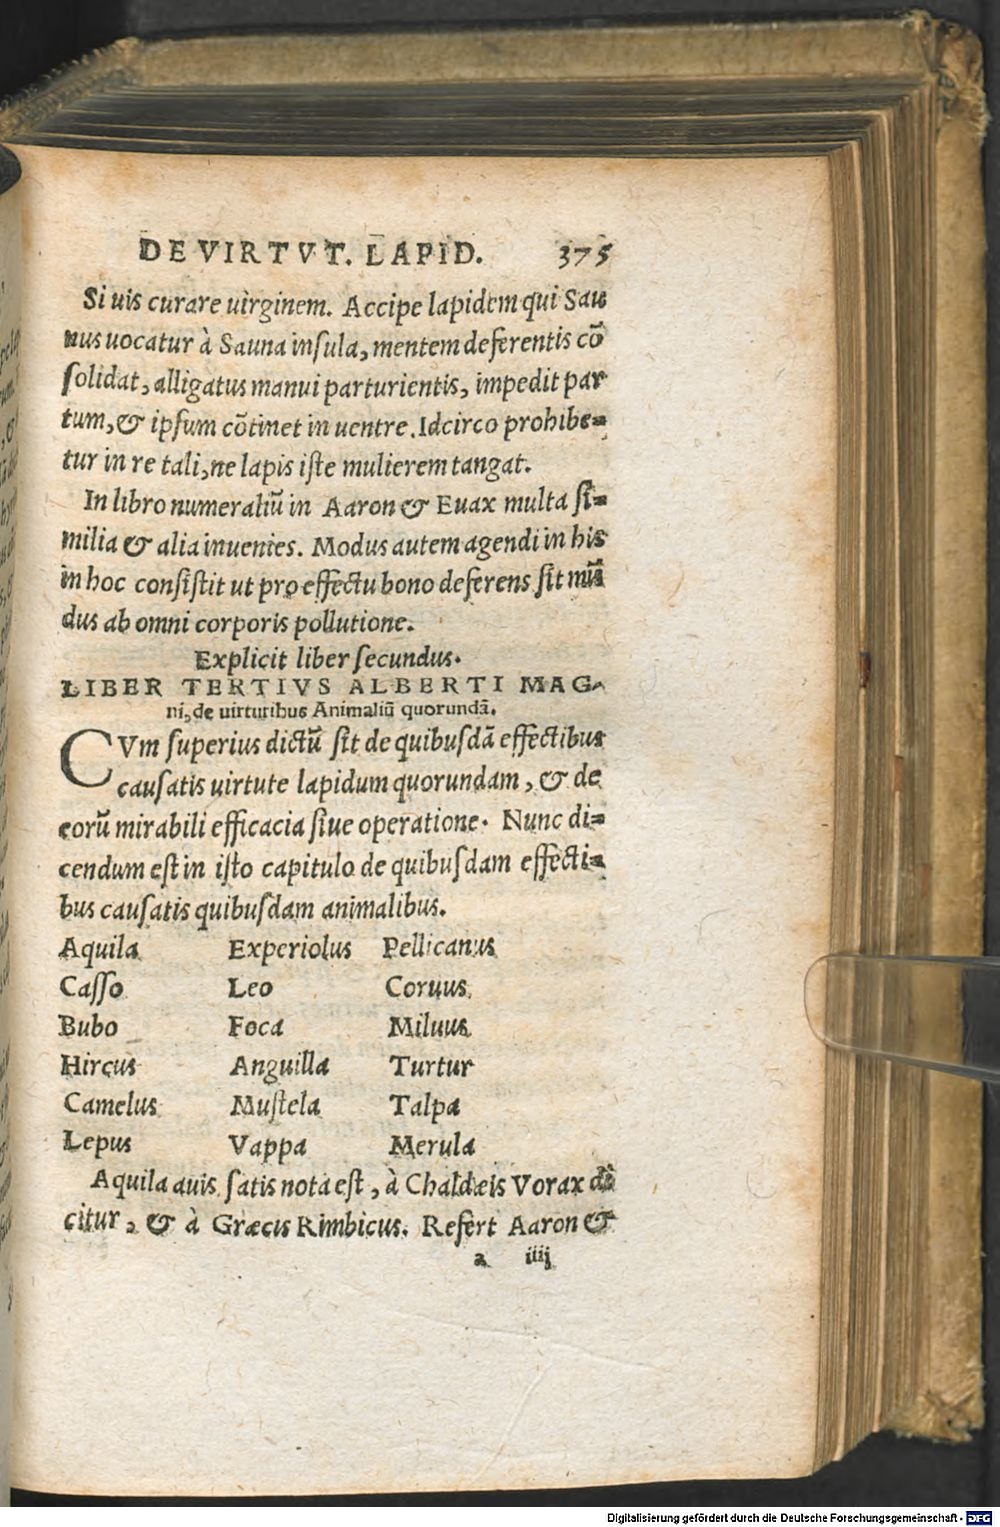 DE VIRTVT. LAPID. 375
Si uis curare uirginem. Accipe lapidem qui Sau
nus uocatur à Sauna insula, mentem deferentis cō
solidat, alligatus manui parturientis, impedit par
tum, & ipsum cōtinet in uentre. Idcirco prohibe=
tur in re tali, ne lapis iste mulierem tangat.
In libro numeraliū in Aaron & Euax multa si=
milia & alia inuenies. Modus autem agendi in his
in hoc consistit ut pro effectu bono deferens sit mū
dus ab omni corporis pollutione.
Explicit liber secundus.
LIBER TERTIVS ALBERTI MAG-
ni, de uirturibus Animaliū quorundā.
CVm superius dictū sit de quibusdā effectibus
causatis uirtute lapidum quorundam, & de
eorū mirabili efficacia siue operatione. Nunc di=
cendum est in isto capitulo de quibusdam effecti=
bus causatis quibusdam animalibus.
Aquila Experiolus Pellicanus
Casso Leo Coruus
Bubo Foca Miluus
Hircus Anguilla Turtur
Camelus Mustela Talpa
Lepus Vappa Merula
Aquila auis satis nota est, à Chaldæis Vorax di
citur, & à Græcis Rimbicus. Refert Aaron &
a iiij
Digitalisierung gefördert durch die Deutsche Forschungsgemeinschaft - DFG